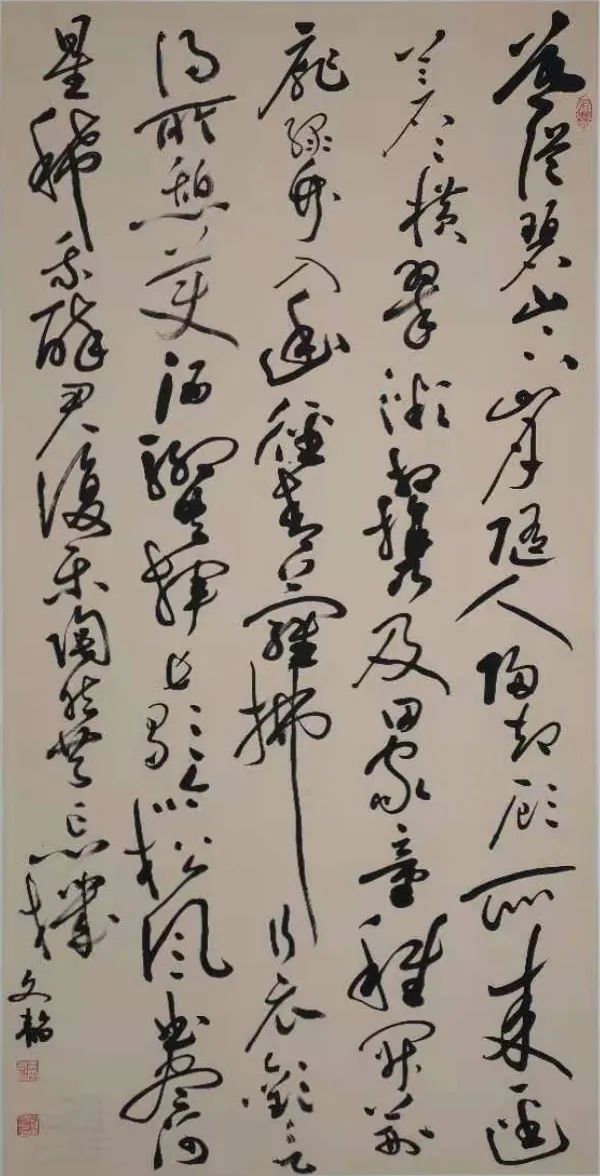 暮從碧山下山月隨人歸却顧所来徑
蒼蒼橫翠微相攜及田家童稚開荆
扉綠竹入幽徑青蘿拂行衣歡言
得所憩美酒聊共揮長歌吟松風曲盡河
星稀我醉君復樂陶然共忘機
文